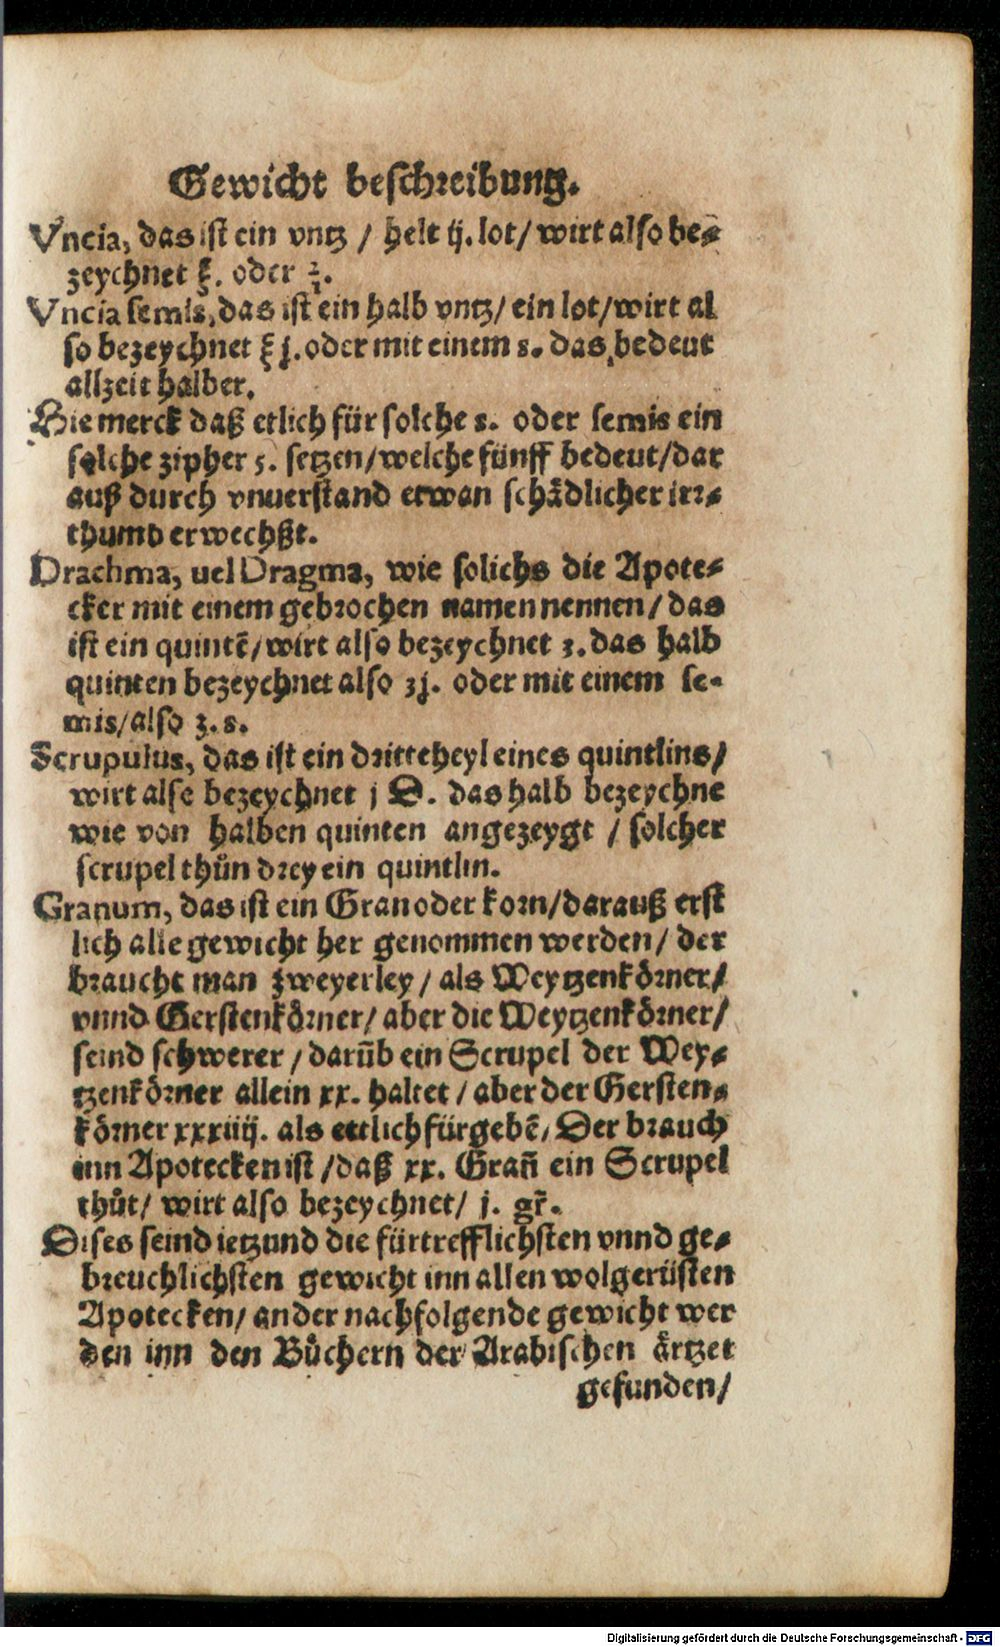 Gewicht beschreibung.
Vncia, das ist ein vntz / helt ij. lot / wirt also be⸗
zeychnet ℥. oder 2/1.
Vncia semis, das ist ein halb vntz / ein lot / wirt al
so bezeychnet ℥ j. oder mit einem s. das bedeut
allzeit halber.
Hie merck daß etlich für solche s. oder semis ein
solche zipher 5. setzen / welche fünff bedeut / dar
auß durch vnuerstand etwan schädlicher irr⸗
thumb erwechßt.
Drachma, uel Dragma, wie solichs die Apote⸗
cker mit einem gebrochen namen nennen / das
ist ein quintē / wirt also bezeychnet ʒ. das halb
quinten bezeychnet also ʒj. oder mit einem se⸗
mis / also ʒ. s.
Scrupulus, das ist ein dritteheyl eines quintlins /
wirt alse bezeychnet j D. das halb bezeychne
wie von halben quinten angezeygt / solcher
scrupel thůn drey ein quintlin.
Granum, das ist ein Gran oder korn / darauß erst
lich alle gewicht her genommen werden / der
braucht man zweyerley / als Weytzenkörner /
vnnd Gerstenkörner / aber die Weytzenkörner /
seind schwerer / darüb ein Scrupel der Wey⸗
tzenkörner allein xx. haltet / aber der Gersten⸗
körner xxxiiij. als ettlich fürgebē / Der brauch
inn Apotecken ist / daß xx. Gran̄ ein Scrupel
thůt / wirt also bezeychnet / j. gr̄.
Dises seind ietzund die fürtrefflichsten vnnd ge⸗
breuchlichsten gewicht inn allen wolgerüsten
Apotecken / ander nachfolgende gewicht wer
den inn den Bůchern der Arabischen ärtzet
gefunden /
Digitalisierung gefördert durch die Deutsche Forschungsgemeinschaft - DFG